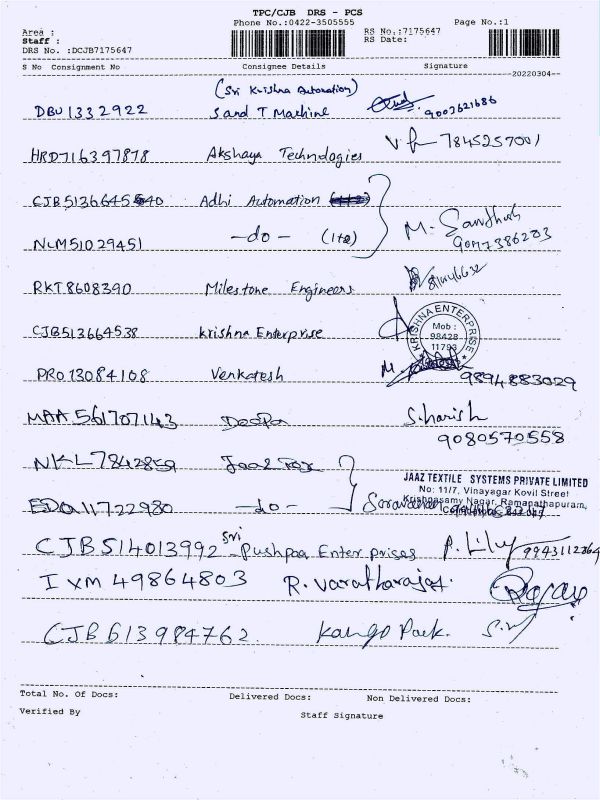 TPC/CJB DRS - PCS
Phone No.:0422-3505555
Page No.:1
Area :
Staff :
DRS No. :DCJB7175647
RS No.:7175647
RS Date:
S No Consignment No Consignee Details Signature
20220304
(Sri Krishna Automation)
DBU 1332922 S and T Machine 9003621686
HRD716397878 Akshaya Technologies 7845257001
CJB5136645 40 Adhi Automation
NLM51029451 -do- M. Santhosh
RKT8608390 Milestone Engineers
CJB513664538 Krishna Enterprise
KRISHNA ENTERPRISE
Mob :
98428
11793
PRO13084108 Venkatesh 9894883029
MAA561707143 Deepa S.harish
9080570558
NKL7842859 Jaaz Tex
JAAZ TEXTILE SYSTEMS PRIVATE LIMITED
No: 11/7, Vinayagar Kovil Street
Krishnasamy Nagar, Ramanathapuram,
EDA11722980 -do- Saravanan
CJB514013992 Sri Pushpaa Enterprises P. Lily 9943112364
IXM 49864803 R. Varatharajas.
CJB613984762. Kango Pack.
Total No. Of Docs: Delivered Docs: Non Delivered Docs:
Verified By Staff Signature